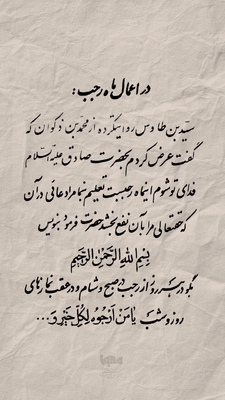 در اعمال ماه رجب:
سیّد بن طاوس روایت کرده از محمّد بن ذکوان که
گفت عرض کردم بحضرت صادق علیه السلام
فدای تو شوم اینماه رجبست تعلیم نما مرا دعائی در آن
که حقتعالی مرا بآن نفع بخشد حضرت فرمود بنویس
بِسْمِ اللهِ الرَّحْمٰنِ الرَّحیمِ
بگو در هر روز از رجب در صبح و شام و در عقب نمازهای
روز و شب یا مَنْ اَرْجُوهُ لِکُلِّ خَیْرٍ وَ...